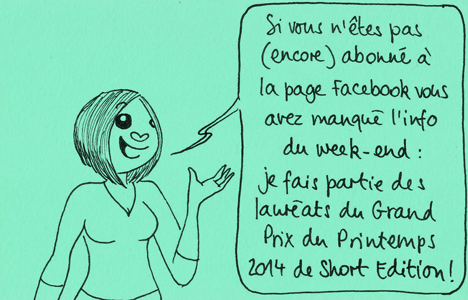 Si vous n'êtes pas
(encore) abonné à
la page Facebook vous
avez manqué l'info
du week-end :
je fais partie des
lauréats du Grand
Prix du Printemps
2014 de Short Edition!